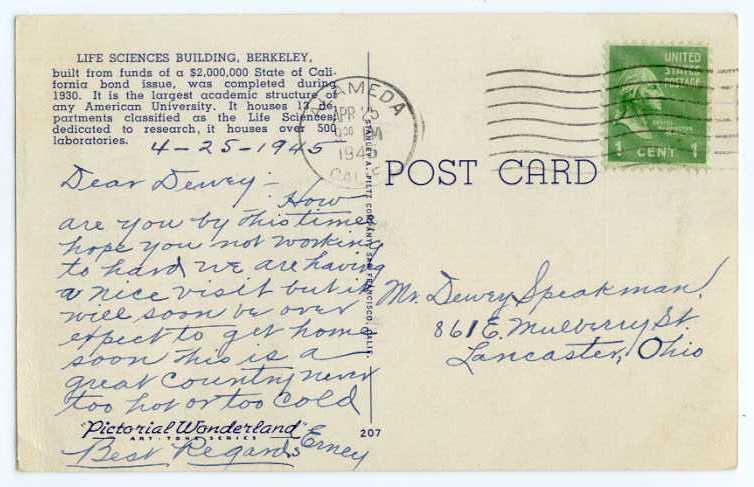 LIFE SCIENCES BUILDING, BERKELEY,
built from funds of a $2,000,000 State of Cali-
fornia bond issue, was completed during
1930. It is the largest academic structure of
any American University. It houses 13 de-
partments classified as the Life Sciences;
dedicated to research, it houses over 500
laboratories.
4-25-1945
Dear Dewey -
How
are you by this time
hope you not working
to hard we are having
a nice visit but it
will soon be over
expect to get home
soon this is a
great country never
too hot or too cold
"Pictorial Wonderland"
ART-TONE SERIES
Best Regards Erney
STANLEY A. PILTZ COMPANY, SAN FRANCISCO, CALIF.
207
ALAMEDA
APR 25
PM
1945
CALIF
POST CARD
UNITED
STATES
POSTAGE
1 CENT 1
Mr. Dewey Speakman
861 E. Mulberry St.
Lancaster, Ohio